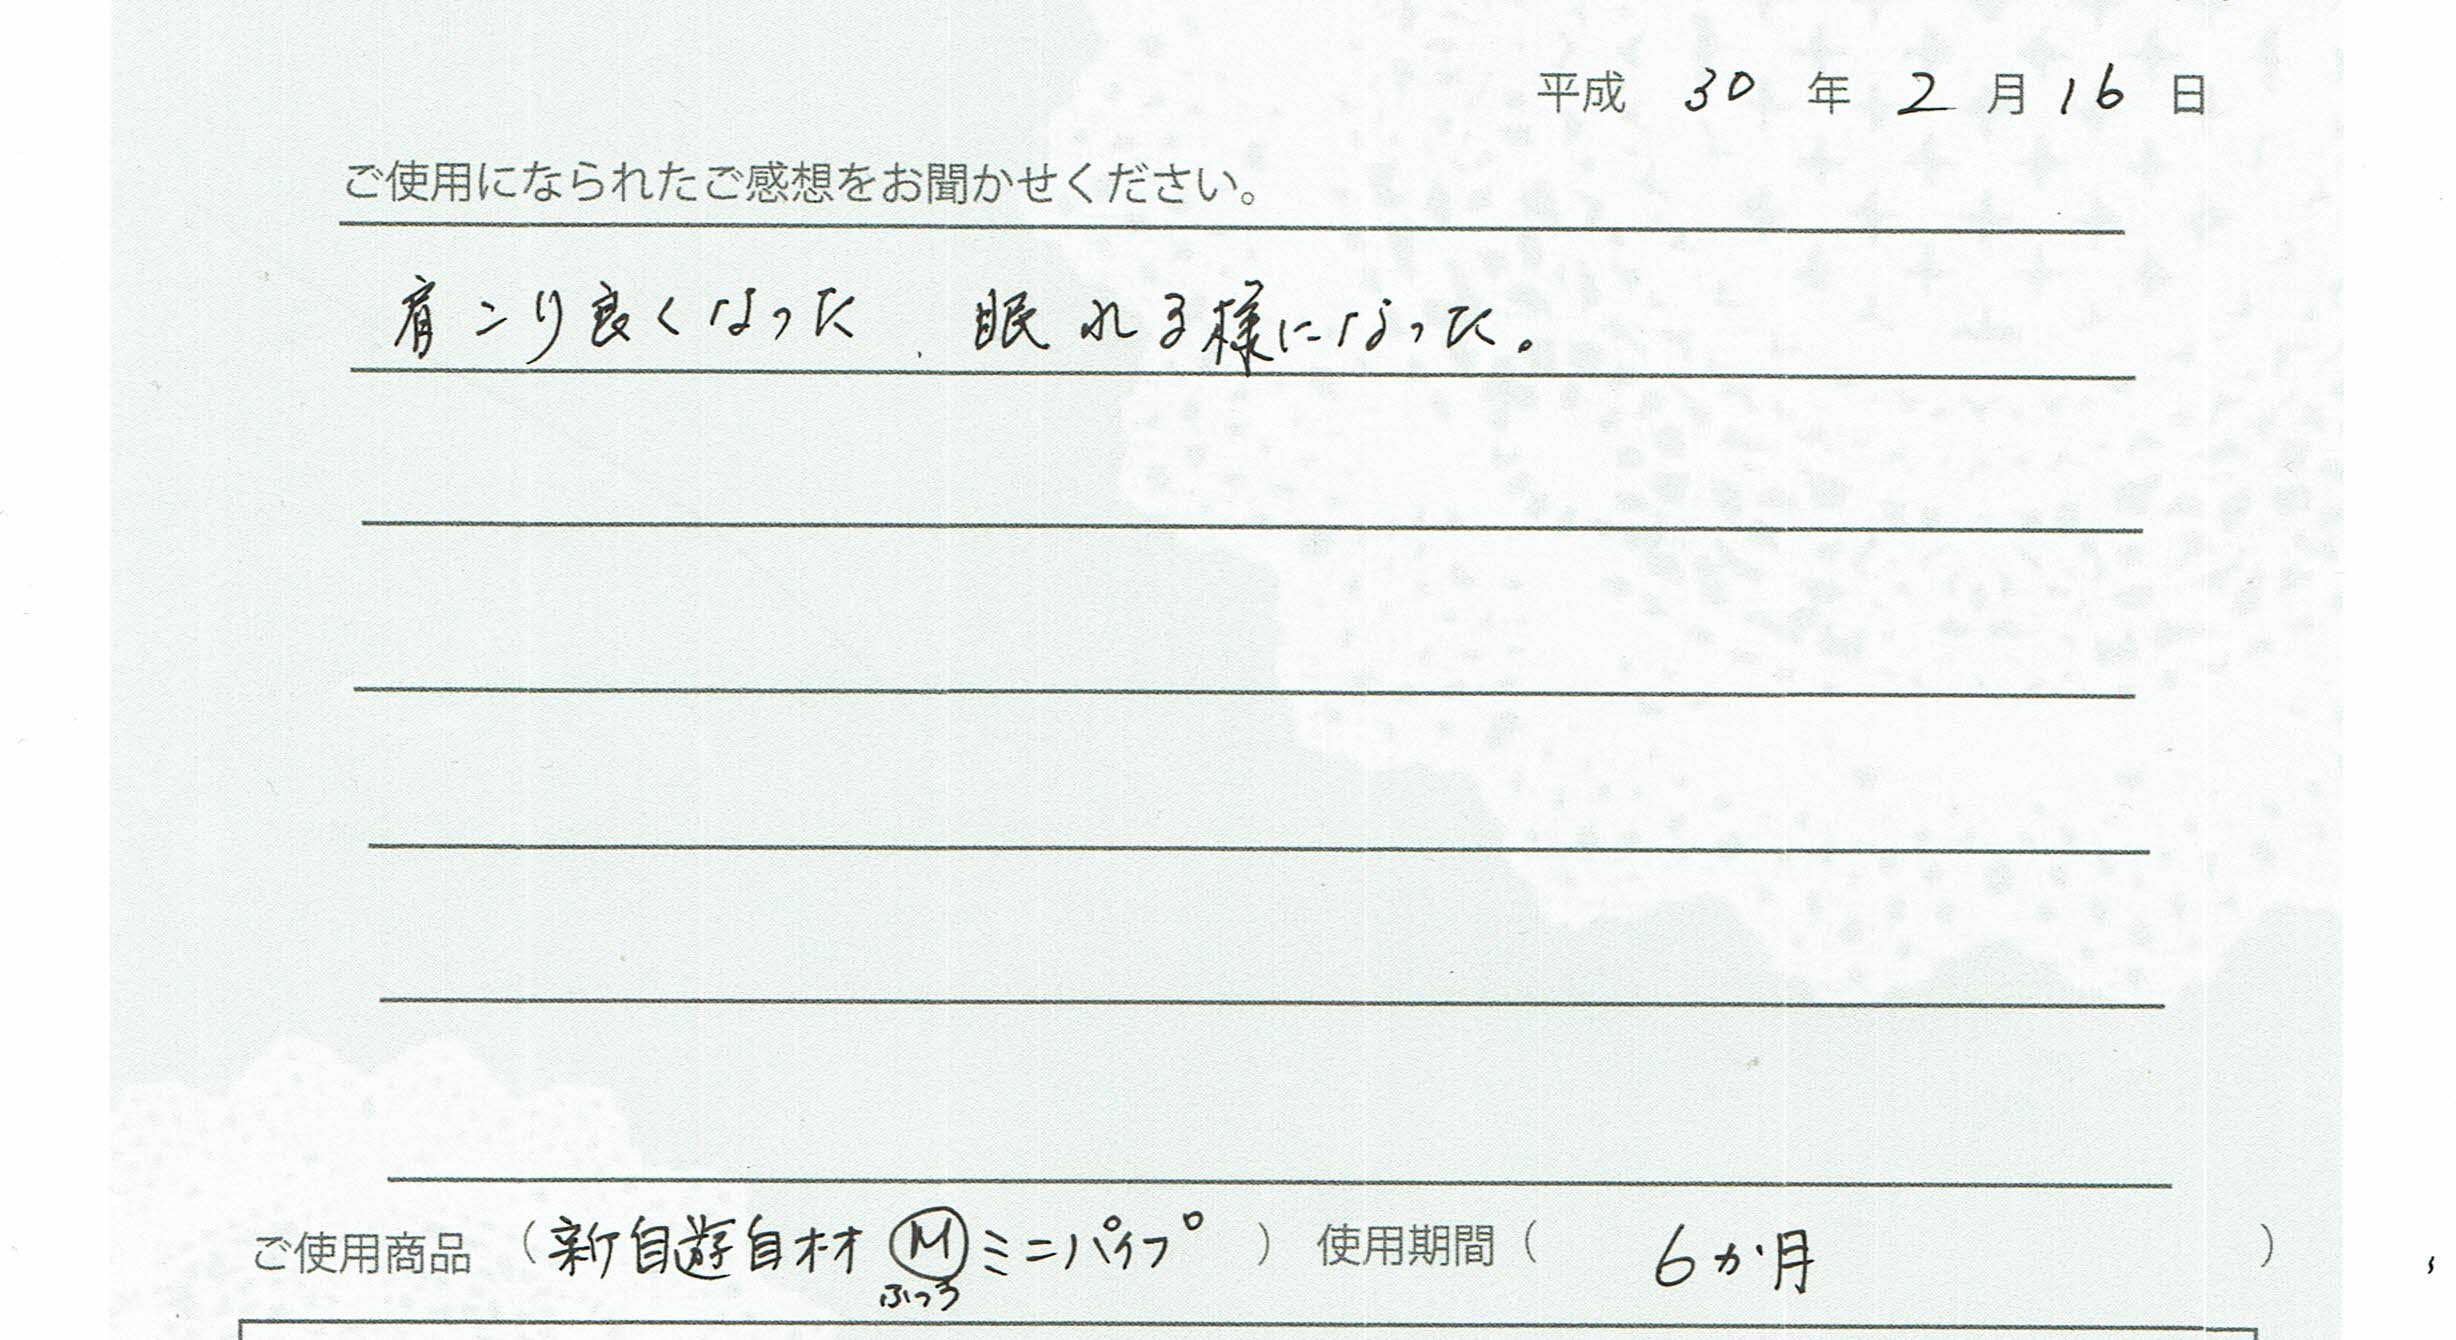 平成 30 年 2 月 16 日
ご使用になられたご感想をお聞かせください。
肩こり良くなった、眠れる様になった。
ご使用商品（新自遊自材 Ⓜ ミニパイプ ）使用期間（ 6か月 ）
ふつう